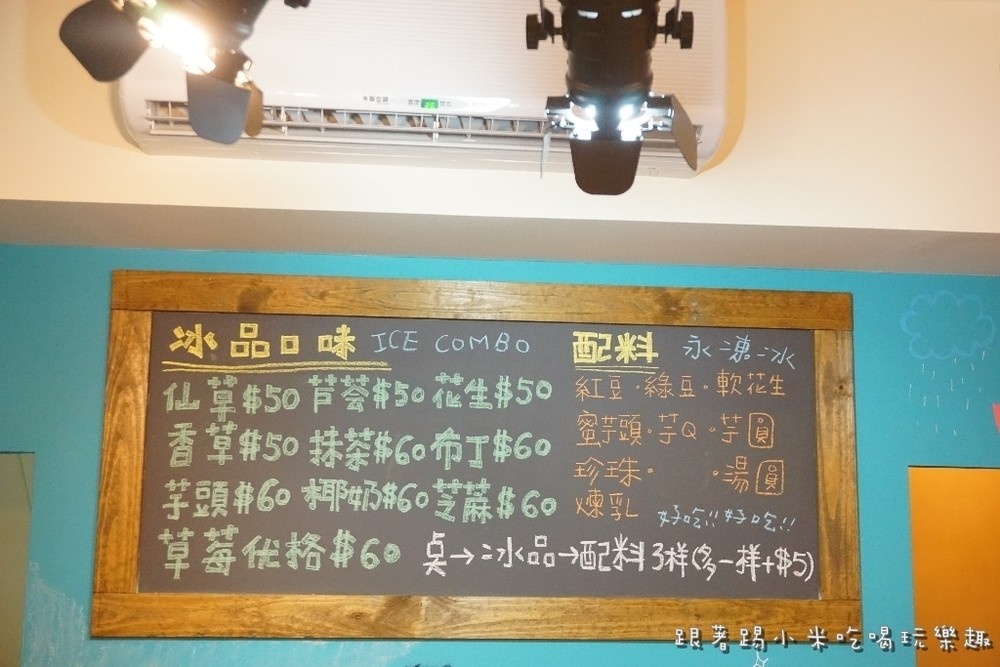 冰品口味 ICE COMBO
仙草$50 芦荟$50 花生$50
香草$50 抹茶$60 布丁$60
芋頭$60 椰奶$60 芝蔴$60
草莓优格$60
配料 永凍冰
紅豆·綠豆·軟花生
蜜芋頭·芋Q·芋圓
珍珠· ·湯圓
煉乳
好吃!!好吃!!
桌→冰品→配料3样(多一样+$5)
跟著踢小米吃喝玩樂趣